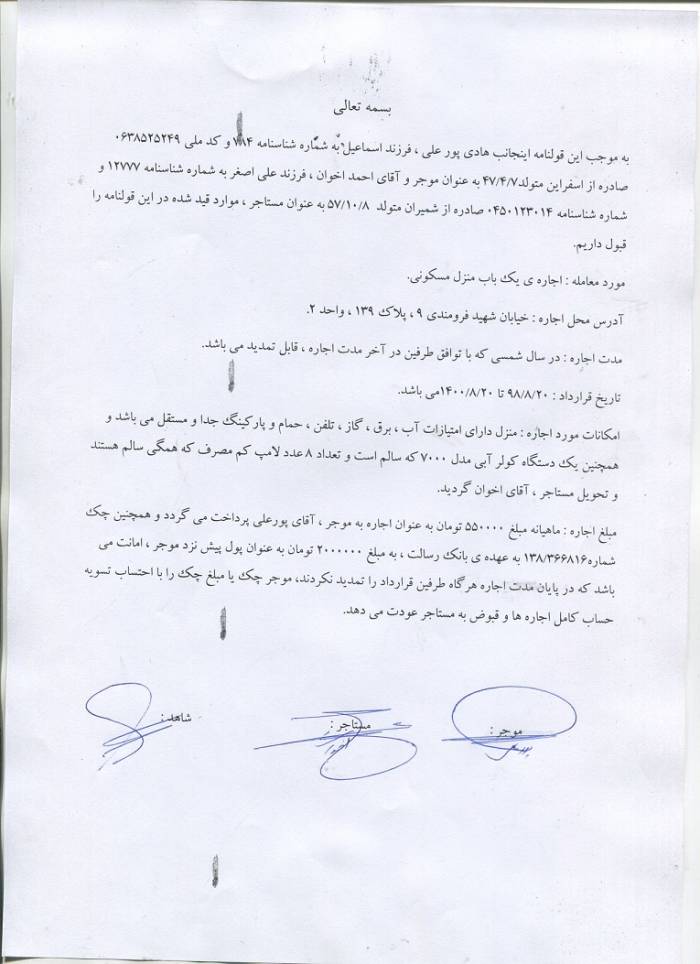 بسمه تعالی
به موجب این قولنامه اینجانب هادی پور علی ، فرزند اسماعیل به شماره شناسنامه ۷۸۴ و کد ملی ۰۶۳۸۵۲۵۲۴۹
صادره از اسفراین متولد۴۷/۴/۷ به عنوان موجر و آقای احمد اخوان ، فرزند علی اصغر به شماره شناسنامه ۱۲۷۷۷ و
شماره شناسنامه ۰۴۵۰۱۲۳۰۱۴ صادره از شمیران متولد ۵۷/۱۰/۸ به عنوان مستاجر ، موارد قید شده در این قولنامه را
قبول داریم.
مورد معامله : اجاره ی یک باب منزل مسکونی.
آدرس محل اجاره : خیابان شهید فرومندی ۹ ، پلاک ۱۳۹ ، واحد ۲.
مدت اجاره : در سال شمسی که با توافق طرفین در آخر مدت اجاره ، قابل تمدید می باشد.
تاریخ قرارداد : ۹۸/۸/۲۰ تا ۱۴۰۰/۸/۲۰می باشد.
امکانات مورد اجاره : منزل دارای امتیازات آب ، برق ، گاز ، تلفن ، حمام و پارکینگ جدا و مستقل می باشد و
همچنین یک دستگاه کولر آبی مدل ۷۰۰۰ که سالم است و تعداد ۸عدد لامپ کم مصرف که همگی سالم هستند
و تحویل مستاجر ، آقای اخوان گردید.
مبلغ اجاره : ماهیانه مبلغ ۵۵۰۰۰۰ تومان به عنوان اجاره به موجر ، آقای پورعلی پرداخت می گردد و همچنین چک
شماره۱۳۸/۳۶۶۸۱۶ به عهده ی بانک رسالت ، به مبلغ ۲۰۰۰۰۰۰ تومان به عنوان پول پیش نزد موجر ، امانت می
باشد که در پایان مدت اجاره هرگاه طرفین قرارداد را تمدید نکردند، موجر چک یا مبلغ چک را با احتساب تسویه
حساب کامل اجاره ها و قبوض به مستاجر عودت می دهد.
موجر : مستاجر : شاهد :